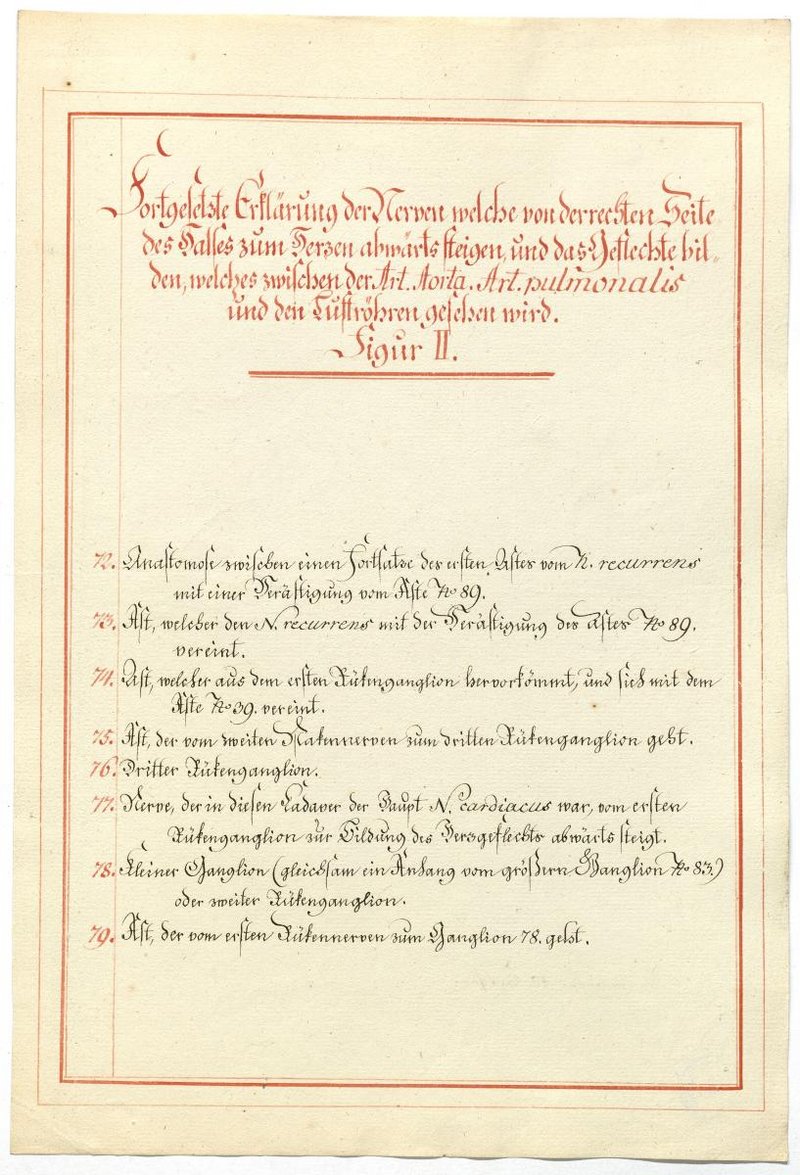 Fortgesetzte Erklärung der Nerven welche von der rechten Seite
des Halses zum Herzen abwärts steigen, und das Geflechte bil-
den, welches zwischen der Art. Aorta. Art. pulmonalis
und den Luftröhren gesehen wird.
Figur II.
72. Anastomose zwischen einen Fortsatze des ersten Astes vom N. recurrens
mit einer Verästigung vom Aste No 89.
73. Ast, welcher den N. recurrens mit der Verästigung des Astes No 89.
vereint.
74. Ast, welcher aus dem ersten Rükenganglion hervorkömmt, und sich mit dem
Aste No 39. vereint.
75. Ast, der vom zweiten Nakennerven zum dritten Rükenganglion geht.
76. Dritter Rükenganglion.
77. Nerve, der in diesen Kadaver der Haupt N. cardiacus war, vom ersten
Rükenganglion zur Bildung des Herzgeflechts abwärts steigt.
78. Kleiner Ganglion (gleichsam ein Anhang vom größern Ganglion No 83.)
oder zweiter Rükenganglion.
79. Ast, der vom ersten Rükennerven zum Ganglion 78. geht.